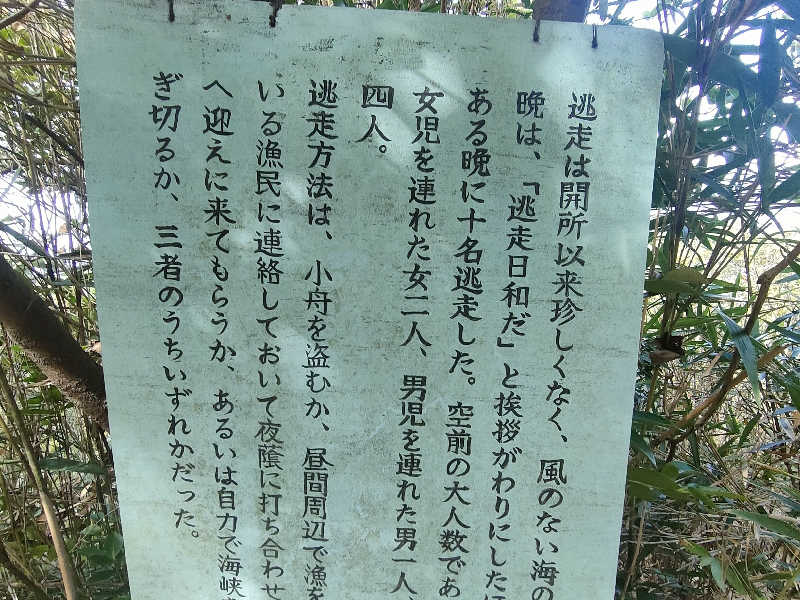 逃走は開所以来珍しくなく、風のない海の
晩は、「逃走日和だ」と挨拶がわりにした
ある晩に十名逃走した。空前の大人数であ
女児を連れた女二人、男児を連れた男一人、
四人。
逃走方法は、小舟を盗むか、昼間周辺で漁を
いる漁民に連絡しておいて夜蔭に打ち合わせ
へ迎えに来てもらうか、あるいは自力で海峡
ぎ切るか、三者のうちいずれかだった。